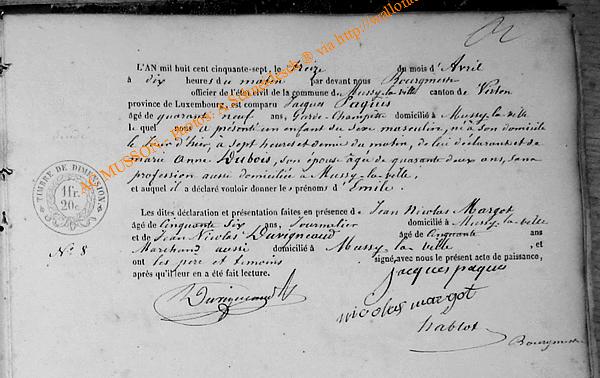 L'AN mil huit cent cinquante-sept, le Treize du mois d'Avril
à dix heures du matin par devant nous Bourgmestre
officier de l'état civil de la commune de Mussy-la-ville canton de Virton
province de Luxembourg, est comparu Jacques Paquis
âgé de quarante neuf ans, Garde-Champêtre domicilié à Mussy-la-ville
lequel nous a présenté un enfant du sexe masculin, né à son domicile
le Jour d'hier, à sept heures et demie du matin, de lui déclarant et de
marie Anne Dubois, son épouse âgée de quarante deux ans, sans
profession aussi domiciliée à Mussy-la-ville,
et auquel il a déclaré vouloir donner les prénoms d'Emile.
Les dites déclaration et présentation faites en présence de Jean Nicolas Margot
âgé de Cinquante Six ans, Journalier domicilié à Mussy-la-ville
et de Jean Nicolas Duvigneaud âgé de Cinquante ans
Marchand aussi domicilié à Mussy-la-ville, et
ont les père et témoins signé, avec nous le présent acte de naissance,
après qu'il leur en a été fait lecture.
TIMBRE DE DIMENSION
1 fr.
20 c.
N° 8
Duvigneaud
Jacques paquis
nicolas margot
hablot
Bourgmestre
AC MUSSON - Photos: A.
® via http://wallon